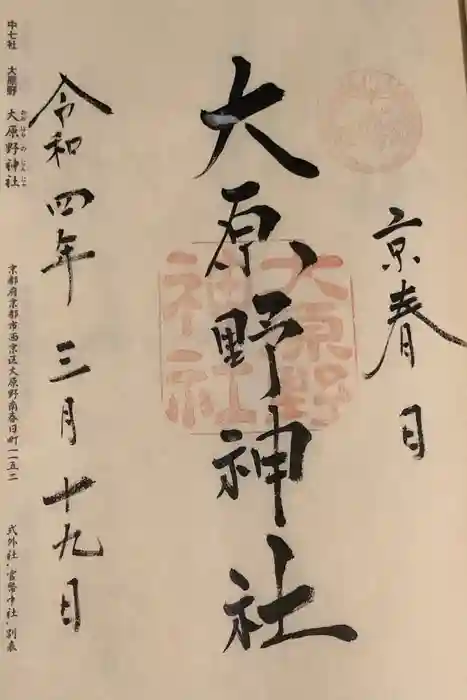 京春日
大原野神社
大原野
神社
令和四年三月十九日
中七社 大原野 大原野神社
おおはらの じんじゃ
京都府京都市西京区大原野南春日町一一五二
式外社・官幣中社・別表